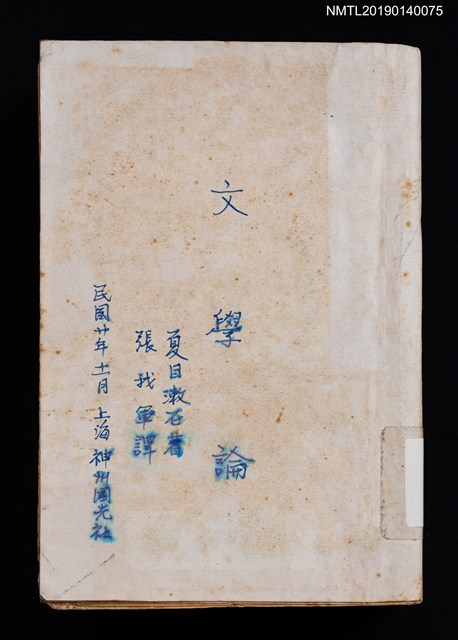 NMTL20190140075
文學論
夏目漱石著
張我軍譯
民國廿年十一月 上海 神州國光社